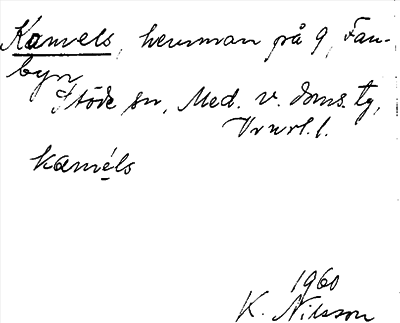 Kamels, hemman på 9, Fan-
byn,
Stöde sn, Med. v. doms. tg,
Vnrl. l.
kamels
1960
K. Nilsson